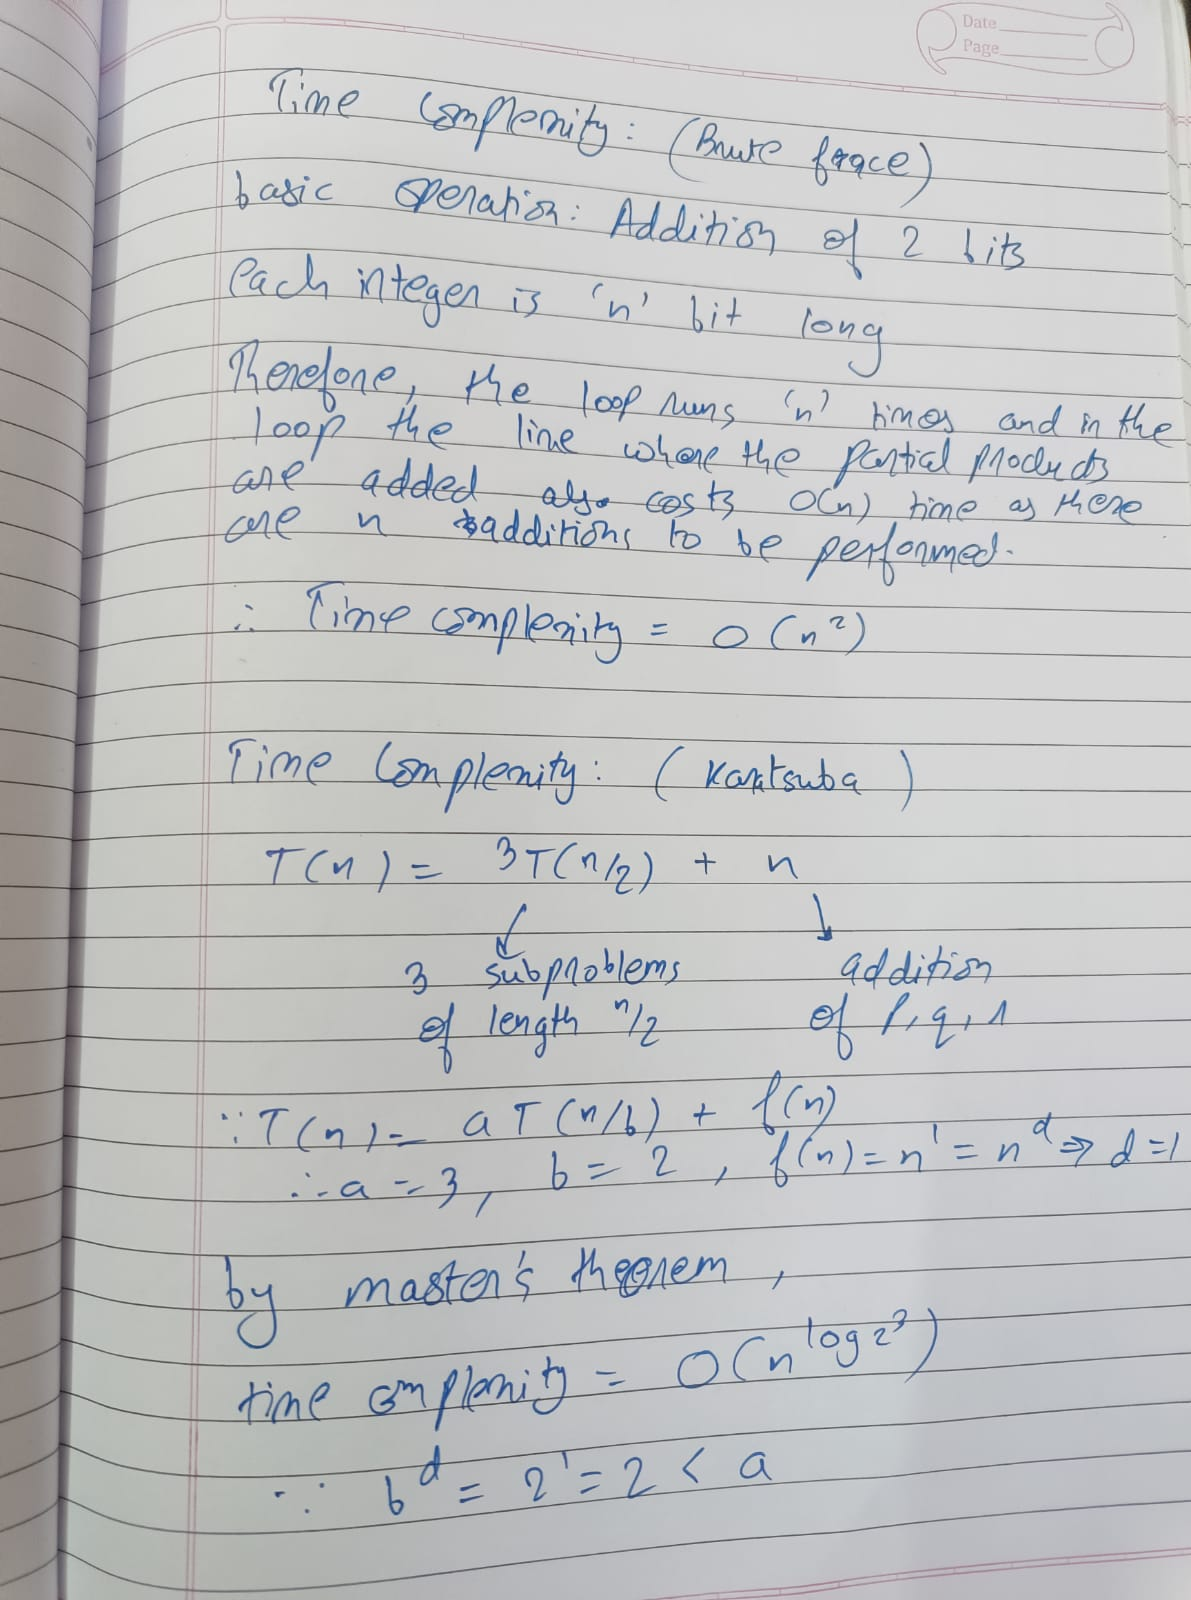 Date
Page
Time Complexity: (Brute force)
basic operation: Addition of 2 bits
Each integer is 'n' bit long
Therefore, the loop runs 'n' times and in the
loop the line where the partial products
are added also costs O(n) time as there
are n additions to be performed.
∴ Time complexity = O(n²)
Time Complexity: (Karatsuba)
T(n) = 3T(n/2) + n
3 subproblems addition
of length n/2 of p, q, r
∵ T(n) = a T(n/b) + f(n)
∴ a = 3, b = 2, f(n) = n¹ = n^d ⇒ d = 1
by master's theorem,
time complexity = O(n^log₂3)
∵ b^d = 2¹ = 2 < a